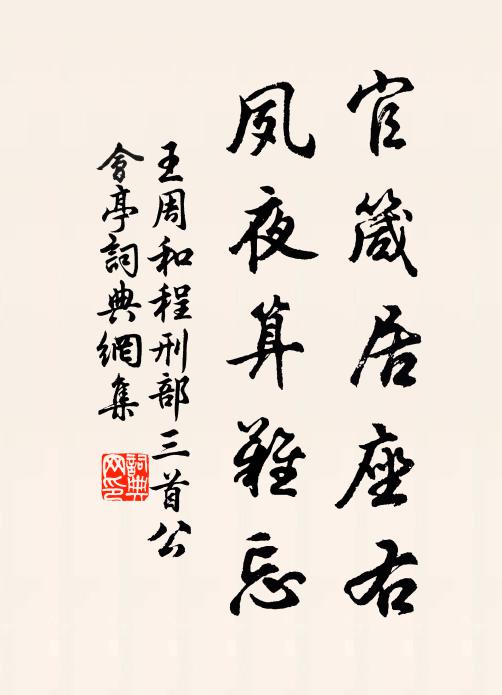 官箴居座右
夙夜算難忘
王周和程刑部三首公
會亭詞典網集
詞典
网印